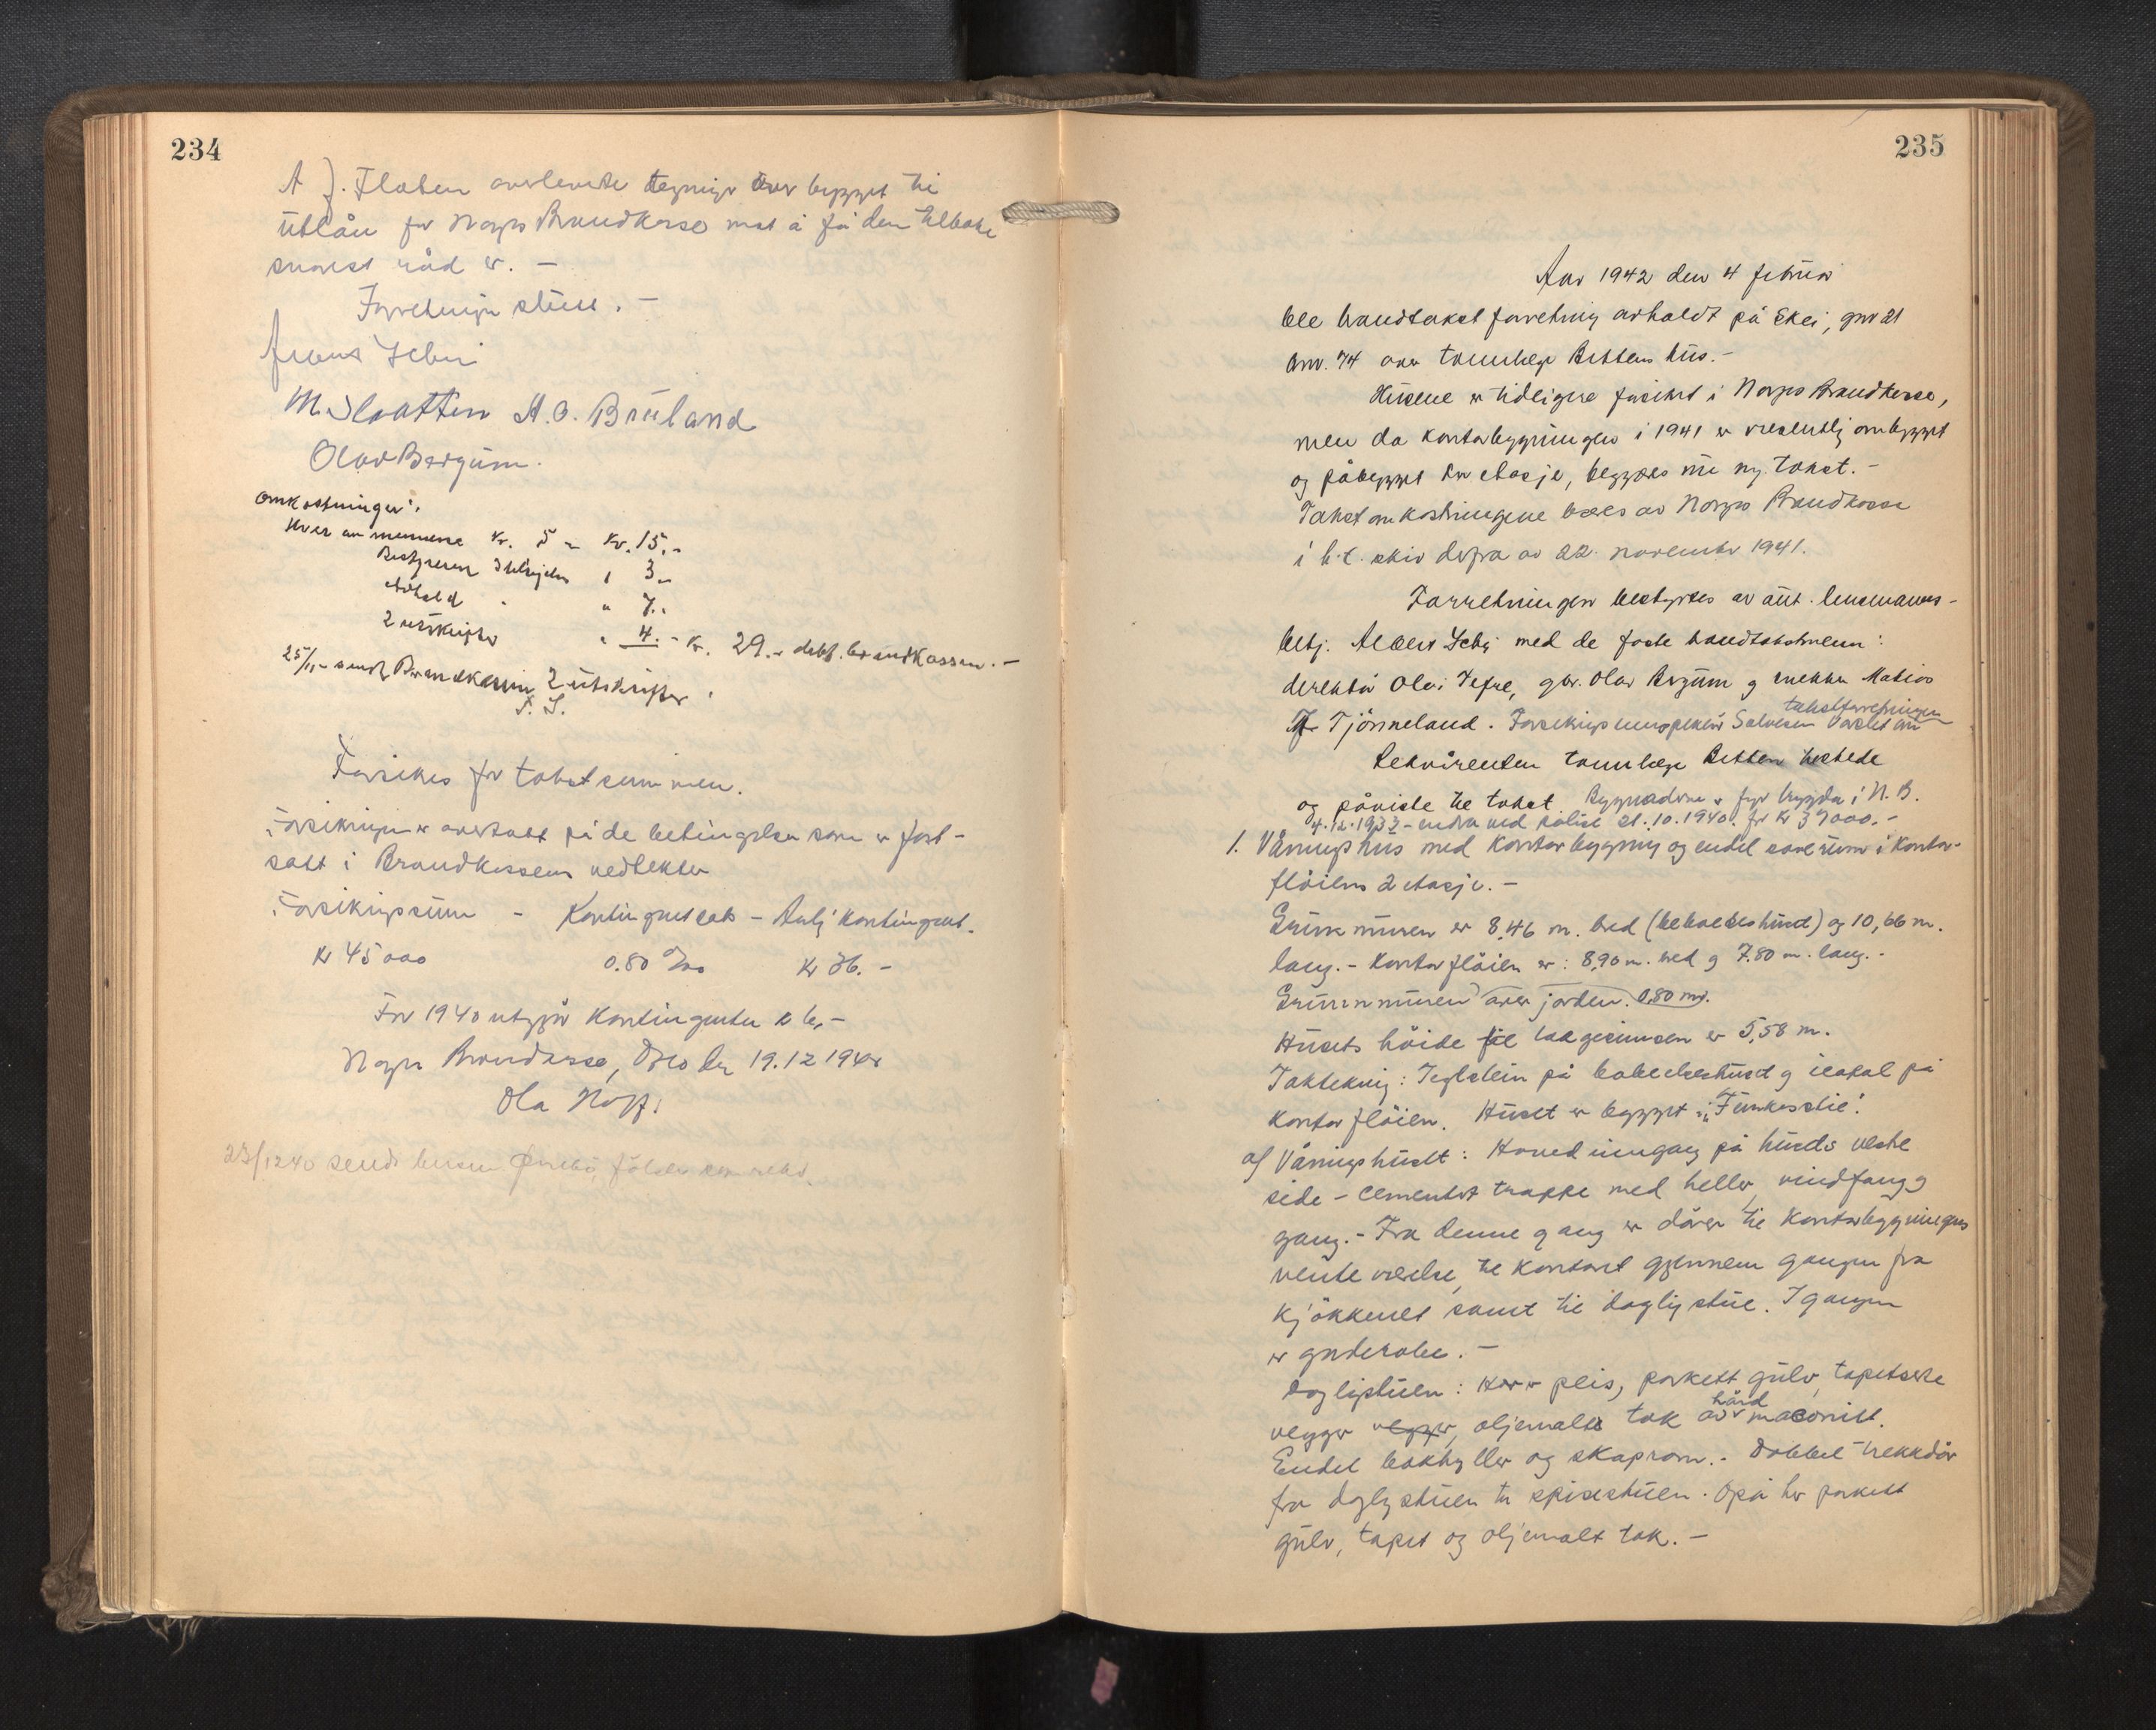 234
A J. Flaten overleverte tegninger over bygget til
utlån for Norges Brandkasse mot å få dem tilbake
snarest råd er. —
Forretningen slutt. —
M. Slaatten A. O. Bruland
Olav Bergum.
Omkostninger:
Hver av mennene kr. 5 — kr. 15.-
Bestyreren 3.-
Avhold " 7.-
2 utskrifter " 4.- kr. 29.- debt. brandkassen. —
25/11- sendt Brandkassen 2 utskrifter.
Forsikres for takstsummen.
Forsikringen er overtatt på de betingelser som er fast-
satt i Brandkassens vedtekter
Forsikringssum - Kontingentsats - Årlig kontingent.
kr 45000 0.80 ‰ kr 36. -
For 1940 utgjør kontingenten kr 6,-
Norges Brandkasse, Oslo den 19.12 1940
Ola
23/12 40 sendt
235
Aar 1942 den 4 februar
ble brandtakst forretning avholdt på Skei, gnr 21
bnr. 74 over tannlege Bettens hus. -
Husene er tidligere forsikret i Norges Brandkasse,
men da kontorbygningen i 1941 er vesentlig ombygget
og påbygget en etasje, begjæres nu ny takst. -
Takstomkostningene bæres av Norges Brandkasse
i h. t. skriv derfra av 22. november 1941.
Forretningen bestyrtes av aut. lensmanns-
betj. Albert med de faste brandtakstmenn:
direktør Olai Tefre, gbr. Olav Bergum og snekker Matias
takstforretningen
Tjönneland. Forsikringsinspektør Salvesen varslet om
Rekvirenten tannlege Betten møtte
og påviste til takst. Bygnadene er før trygda i N. B.
4.12.1933 - endra ved polise 21.10.1940 for kr 39000.-
1. Våningshus med kontorbygning og endel soverum i kontor-
fløiens 2 etasje. -
Grunnmuren er 8,46 m. bred (beboelseshuset) og 10,66 m.
lang. - Kontorfløien er: 8,90 m. bred og 7.80 m. lang. -
Grunnmuren over jorden. 0.80 m.
Husets høide til takgesimsen er 5,58 m.
Taktekking: Teglstein på beboelseshuset og icopal på
kontorfløien. Huset er bygget i "Funkisstil".
a/ Våningshuset: Hovedinngang på husets vestre
side - cementert trappe med heller, vindfang og
gang. - Fra denne gang er dører til kontorbygningens
venteværelse, til kontoret gjennem gangen fra
kjökkenet samt til daglig stue. I gangen
er garderobe. -
Dagligstuen: Har peis, parkett gulv, tapetserte
hård
vegger vegger, oljemalt tak av masonitt.
Endel bokhyller og skaprom. - Dobbel trekkdör
fra daglig stuen til spisestuen. Også her parkett
gulv, tapet og oljemalt tak. -